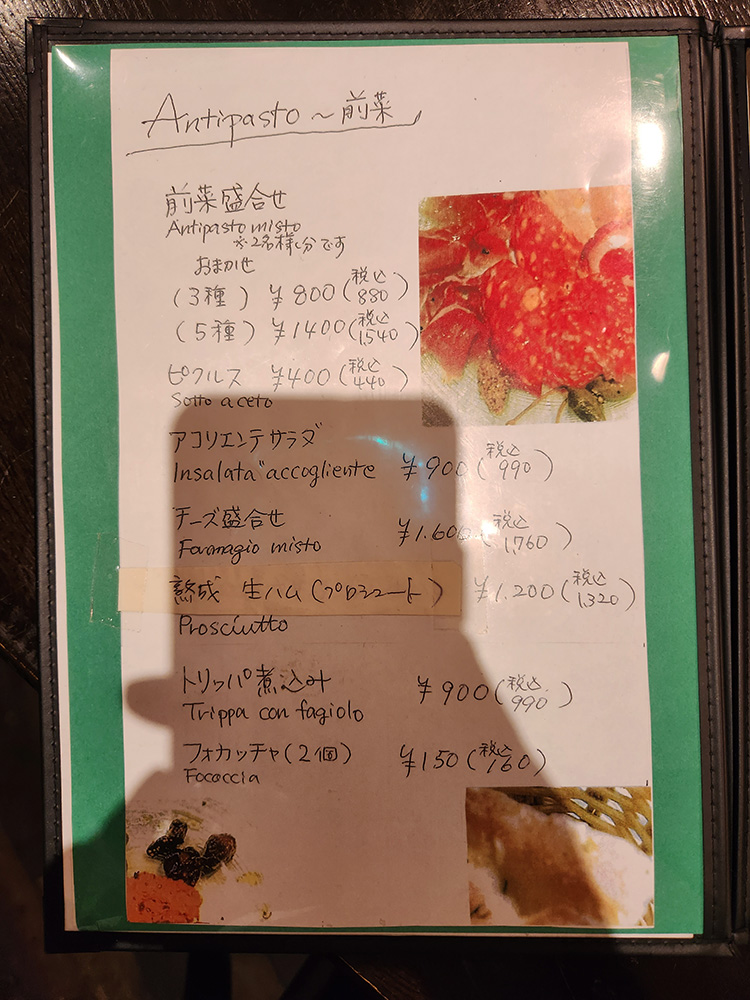 Antipasto～前菜
前菜盛合せ
Antipasto misto
※2名様分です
おまかせ
（3種） ¥800（税込880）
（5種） ¥1400（税込1,540）
ピクルス ¥400（税込440）
Sotto aceto
アコリエンテサラダ
Insalata "accogliente ¥900（税込990）
チーズ盛合せ ¥1.600（税込1,760）
Formagio misto
熟成 生ハム（プロシュート） ¥1.200（税込1,320）
Prosciutto
トリッパ煮込み ¥900（税込990）
Trippa con fagiolo
フォカッチャ（2個） ¥150（税込160）
Focaccia